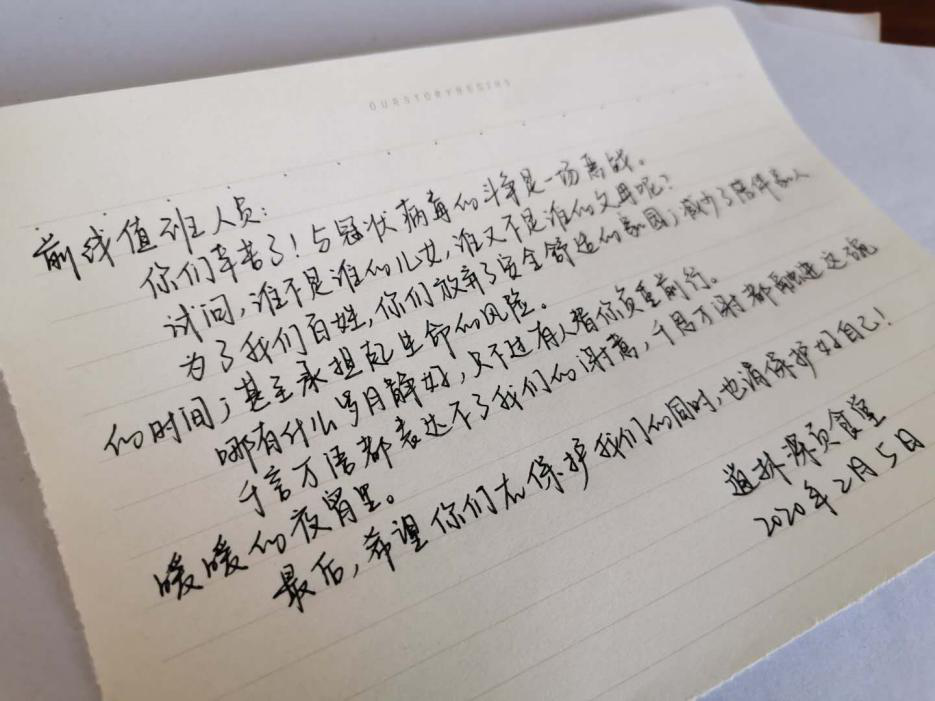 OURSTORYBEGINS
前线值班人员:
你们辛苦了!与冠状病毒的斗争是一场离战。
试问,谁不是谁的儿女,谁又不是谁的父母呢?
为了我们百姓,你们放弃了安全舒适的家园;减少了陪伴家人
的时间;甚至承担起生命的风险。
哪有什么岁月静好,只不过有人替你负重前行。
千言万语都表达不了我们的谢意,千恩万谢都融进这碗
暖暖的夜宵里。
最后,希望你们在保护我们的同时,也请保护好自己!
深夜食堂
2020年2月5日